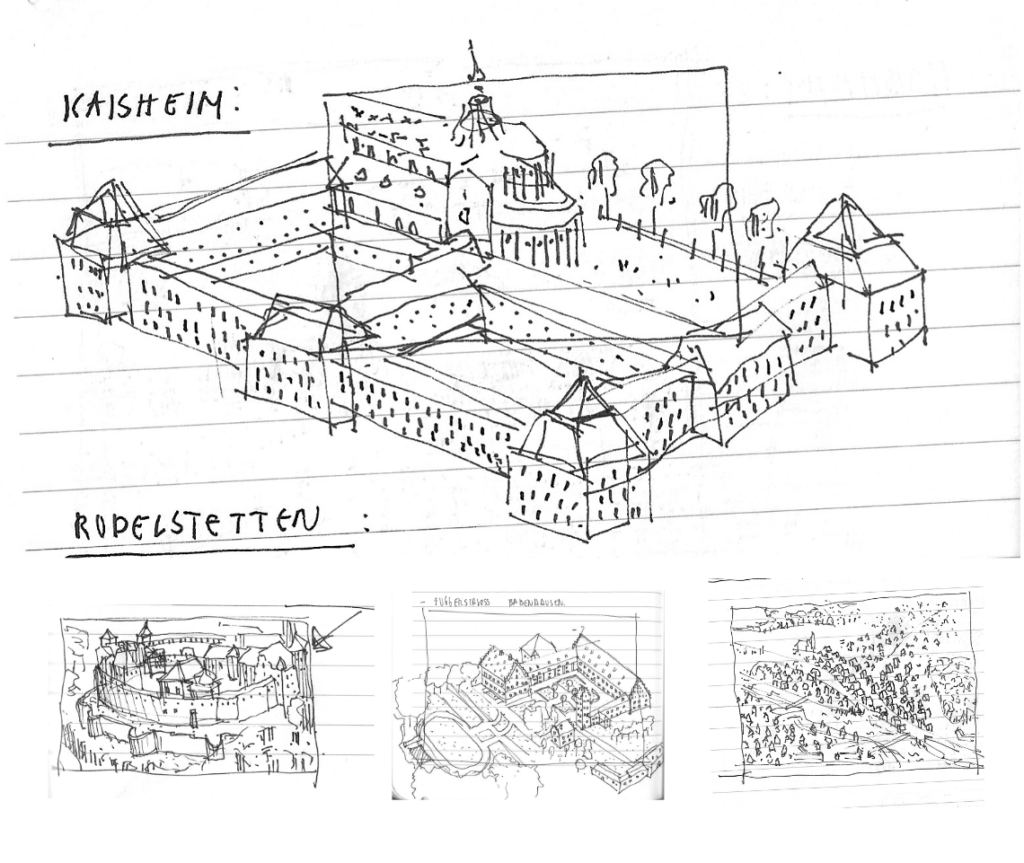 KAISHEIM:
RUDELSTETTEN :
- FUGGERSCHLOSS BABENHAUSEN.